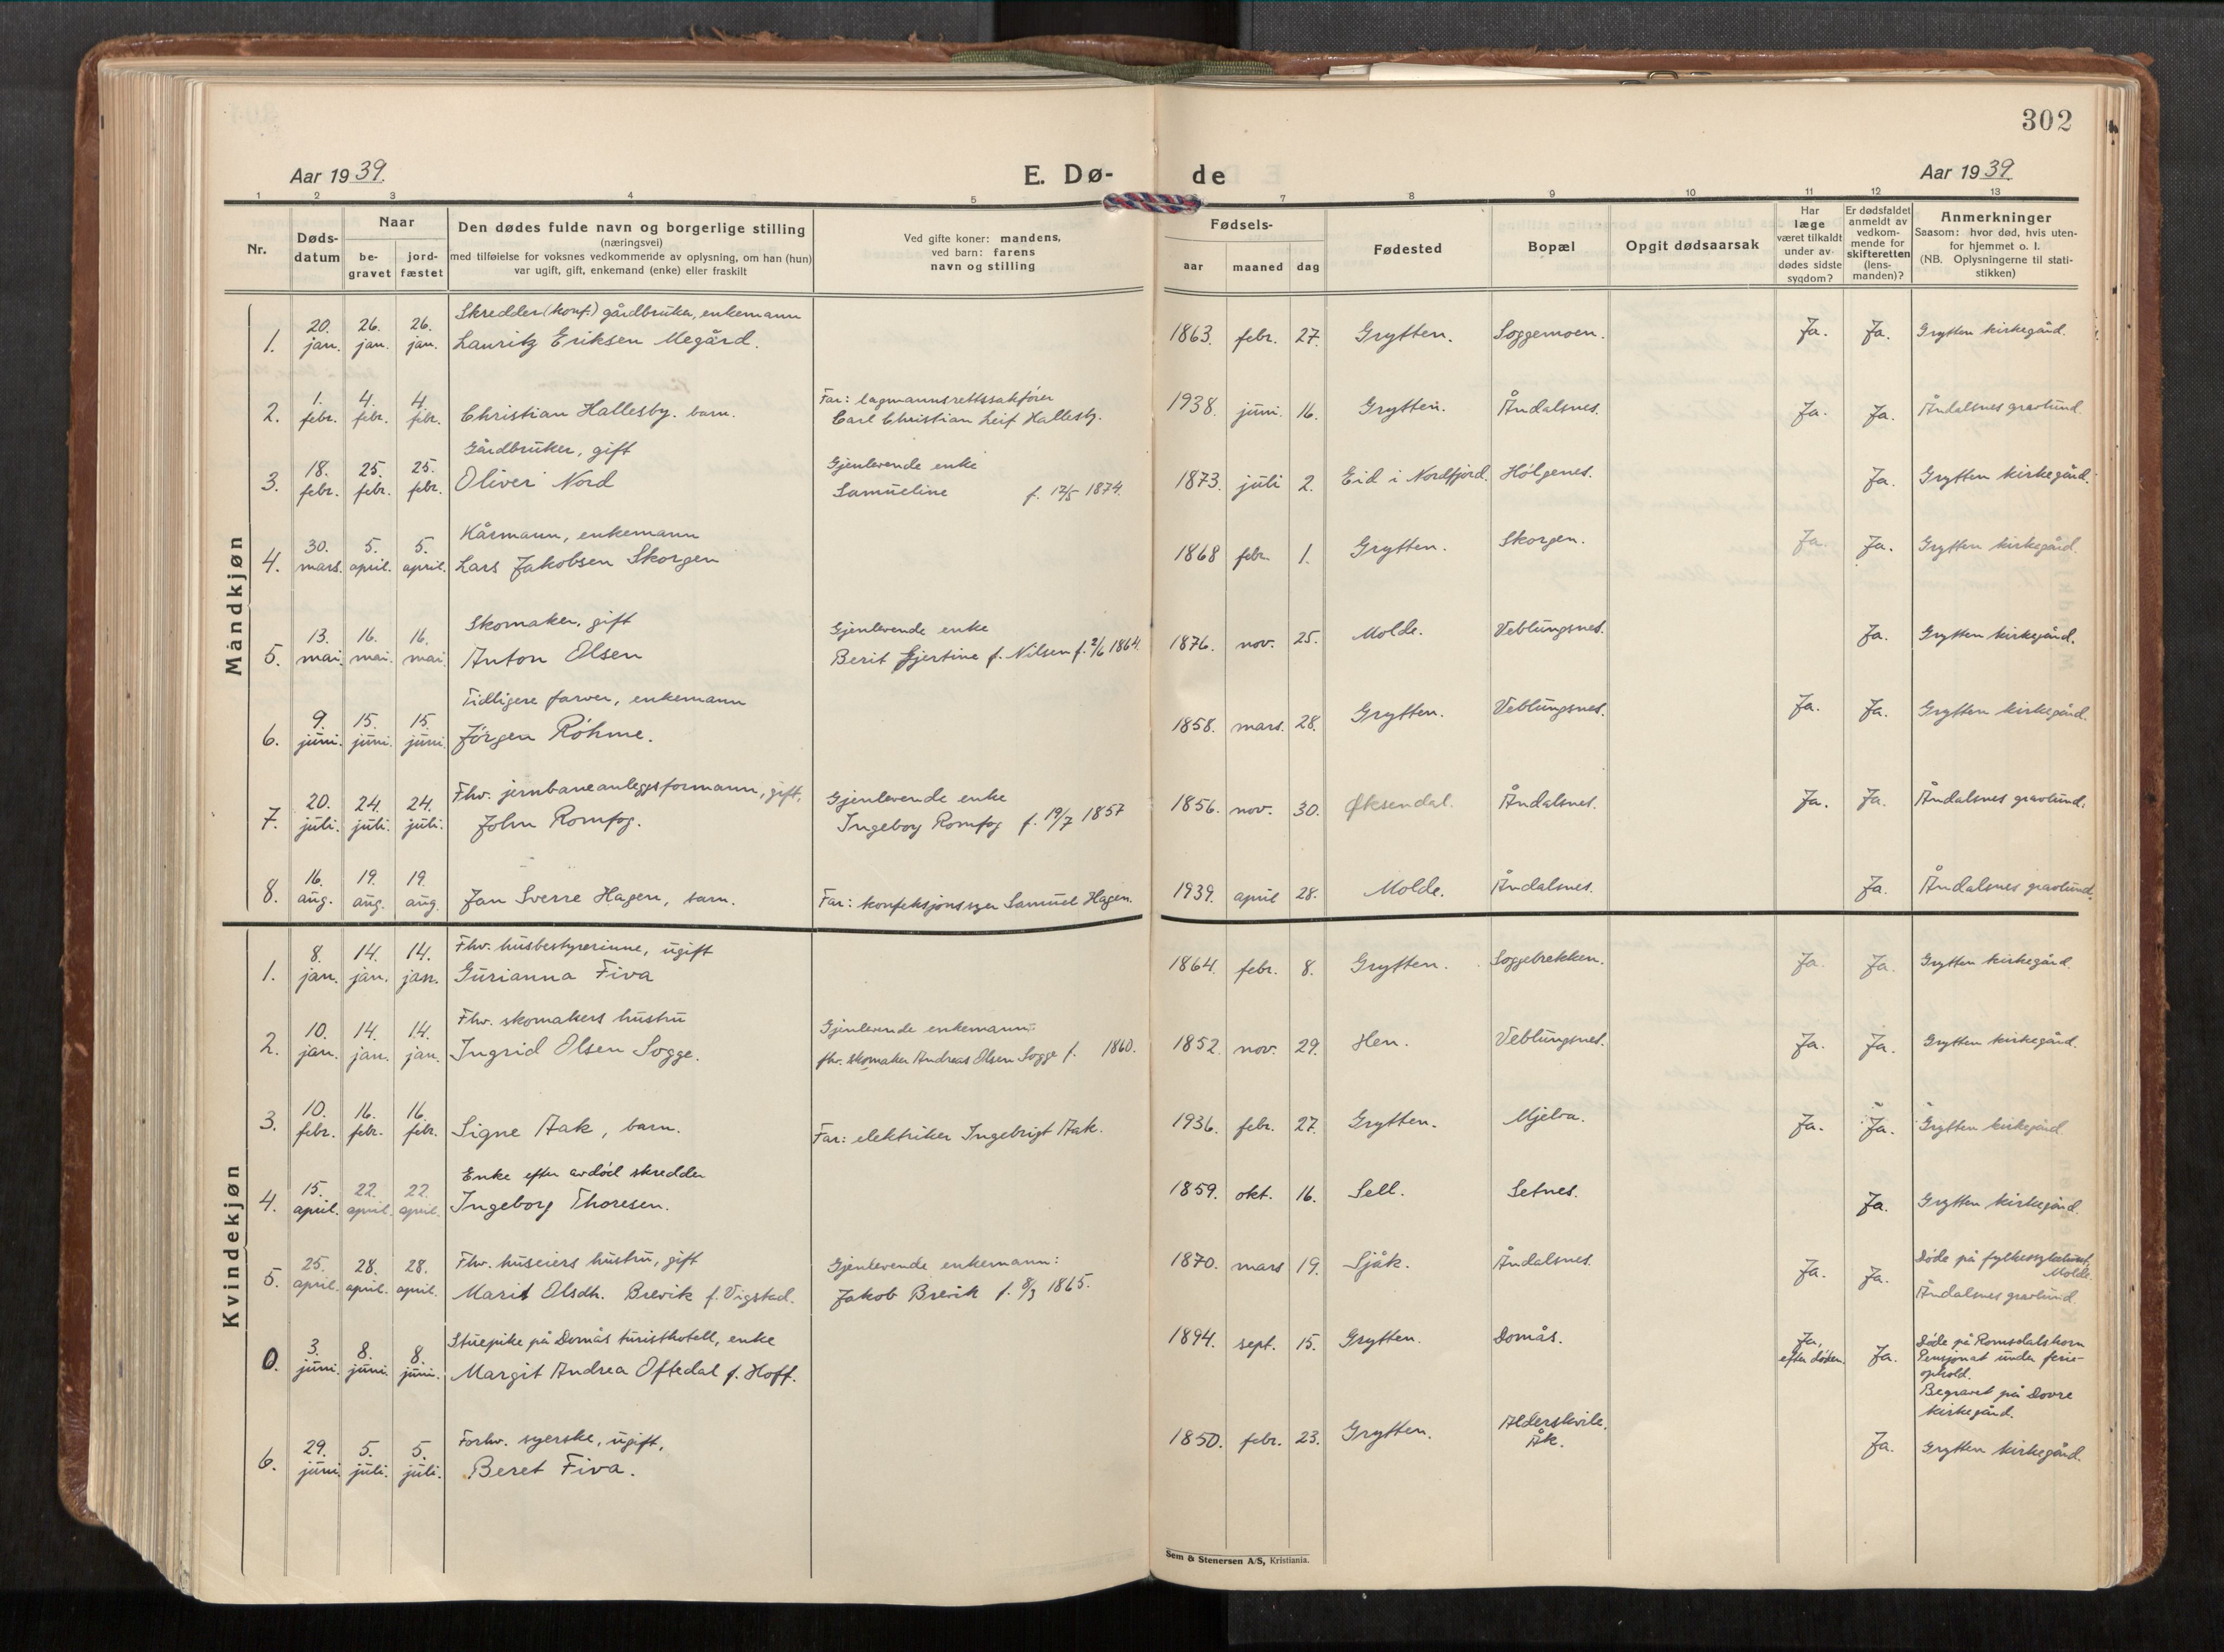 302
Aar 1939.
E. Dø-
de
Aar 1939.
1 2 3 4 5 7 8 9 10 11 12 13
Nr.
Døds-
datum
Naar
be-
gravet
jord-
fæstet
Den dødes fulde navn og borgerlige stilling
(næringsvei)
med tilføielse for voksnes vedkommende av oplysning, om han (hun)
var ugift, gift, enkemand (enke) eller fraskilt
Ved gifte koner: mandens,
ved barn: farens
navn og stilling
Fødsels-
aar maaned dag
Fødested
Bopæl
Opgit dødsaarsak
Har
læge
været tilkaldt
under av-
dødes sidste
sygdom?
Er dødsfaldet
anmeldt av
vedkom-
mende for
skifteretten
(lens-
manden)?
Anmerkninger
Saasom: hvor død, hvis uten-
for hjemmet o. l.
(NB. Oplysningerne til stati-
stikken)
Mandkjøn
Skredder (konf.) gårdbruker, enkemann
1. 20. jan. 26. jan. 26. jan. Lauritz Eriksen Megård. 1863. febr. 27. Grytten. Soggemoen. Ja. Ja. Grytten kirkegård.
Far: lagmannsrettssakfører
2. 1. febr. 4. febr. 4. febr. Christian Hallesby. barn. Carl Christian Leif Hallesby. 1938. juni. 16. Grytten. Åndalsnes. Ja. Ja. Åndalsnes gravlund.
Gårdbruker, gift Gjenlevende enke
3. 18. febr. 25. febr. 25. febr. Oliver Nord Samueline f. 12/5 1874. 1873. juli 2. Eid i Nordfjord. Holgenes. Ja. Grytten kirkegård.
Kårmann, enkemann
4. 30. mars. 5. april. 5. april. Lars Jakobsen Skorgen 1868 febr. 1. Grytten. Skorgen. Ja. Ja. Grytten kirkegård.
Skomaker, gift Gjenlevende enke
5. 13. mai. 16. mai. 16. mai Anton Olsen Berit Gjertine f. Nilsen f. 2/6 1864. 1876. nov. 25. Molde. Veblungsnes. Ja. Grytten kirkegård.
Tidligere farver, enkemann
6. 9. juni. 15. juni. 15. juni Jørgen Röhme. 1858. mars. 28. Grytten. Veblungsnes. Ja. Ja. Grytten kirkegård.
Fhv. jernbaneanleggsformann, gift. Gjenlevende enke
7. 20. juli. 24. juli. 24. juli. John Romfog. Ingeborg Romfog f. 19/7 1857 1856. nov. 30. Øksendal. Åndalsnes. Ja. Ja. Åndalsnes gravlund.
8. 16. aug. 19. aug. 19. aug. Jan Sverre Hagen, barn. Far: konfeksjonssyer Samuel Hagen. 1939. april 28. Molde. Åndalsnes. Ja. Åndalsnes gravlund.
Kvindekjøn
Fhv. husbestyrerinne, ugift
1. 8. jan. 14. jan. 14. jan. Gurianna Fiva 1864. febr. 8. Grytten. Soggebrekken. Ja. Ja. Grytten kirkegård.
Fhv. skomakers hustru Gjenlevende enkemann:
2. 10. jan. 14. jan. 14. jan. Ingrid Olsen Sogge. fhv. skomaker Andreas Olsen Sogge f. 1860. 1852. nov. 29. Hen. Veblungsnes. Ja. Ja. Grytten kirkegård.
3. 10. febr. 16. febr. 16. febr. Signe Aak, barn. Far: elektriker Ingebrigt Aak. 1936. febr. 27. Grytten. Mjelva. Ja. Ja. Grytten kirkegård.
Enke efter avdød skredder
4. 15. april. 22. april. 22. april. Ingeborg Thoresen. 1859. okt. 16. Sell. Setnes. Ja. Grytten kirkegård.
Fhv. huseiers hustru, gift Gjenlevende enkemann:
5. 25. april. 28. april. 28. april. Marit Olsdh. Brevik f. Vigstad. Jakob Brevik f. 8/3 1865. 1870. mars 19. Sjåk. Åndalsnes. Ja. Ja. Døde på fylkessykehuset,
Molde.
Åndalsnes gravlund.
Stuepike på Domås turisthotell, enke
0. 3. juni. 8. juni. 8. juni. Margit Andrea Oftedal f. Hoff. 1894. sept. 15. Grytten. Domås. Ja, efter døden. Ja. Døde på Romsdalshorn
Pensjonat under ferie-
ophold.
Begravet på Dovre
kirkegård.
Forhv. syerske, ugift,
6. 29. juni. 5. juli. 5. juli. Beret Fiva. 1850. febr. 23. Grytten. Alderskvile, Åk. Ja. Grytten kirkegård.
Sem & Stenersen A/S, Kristiania.